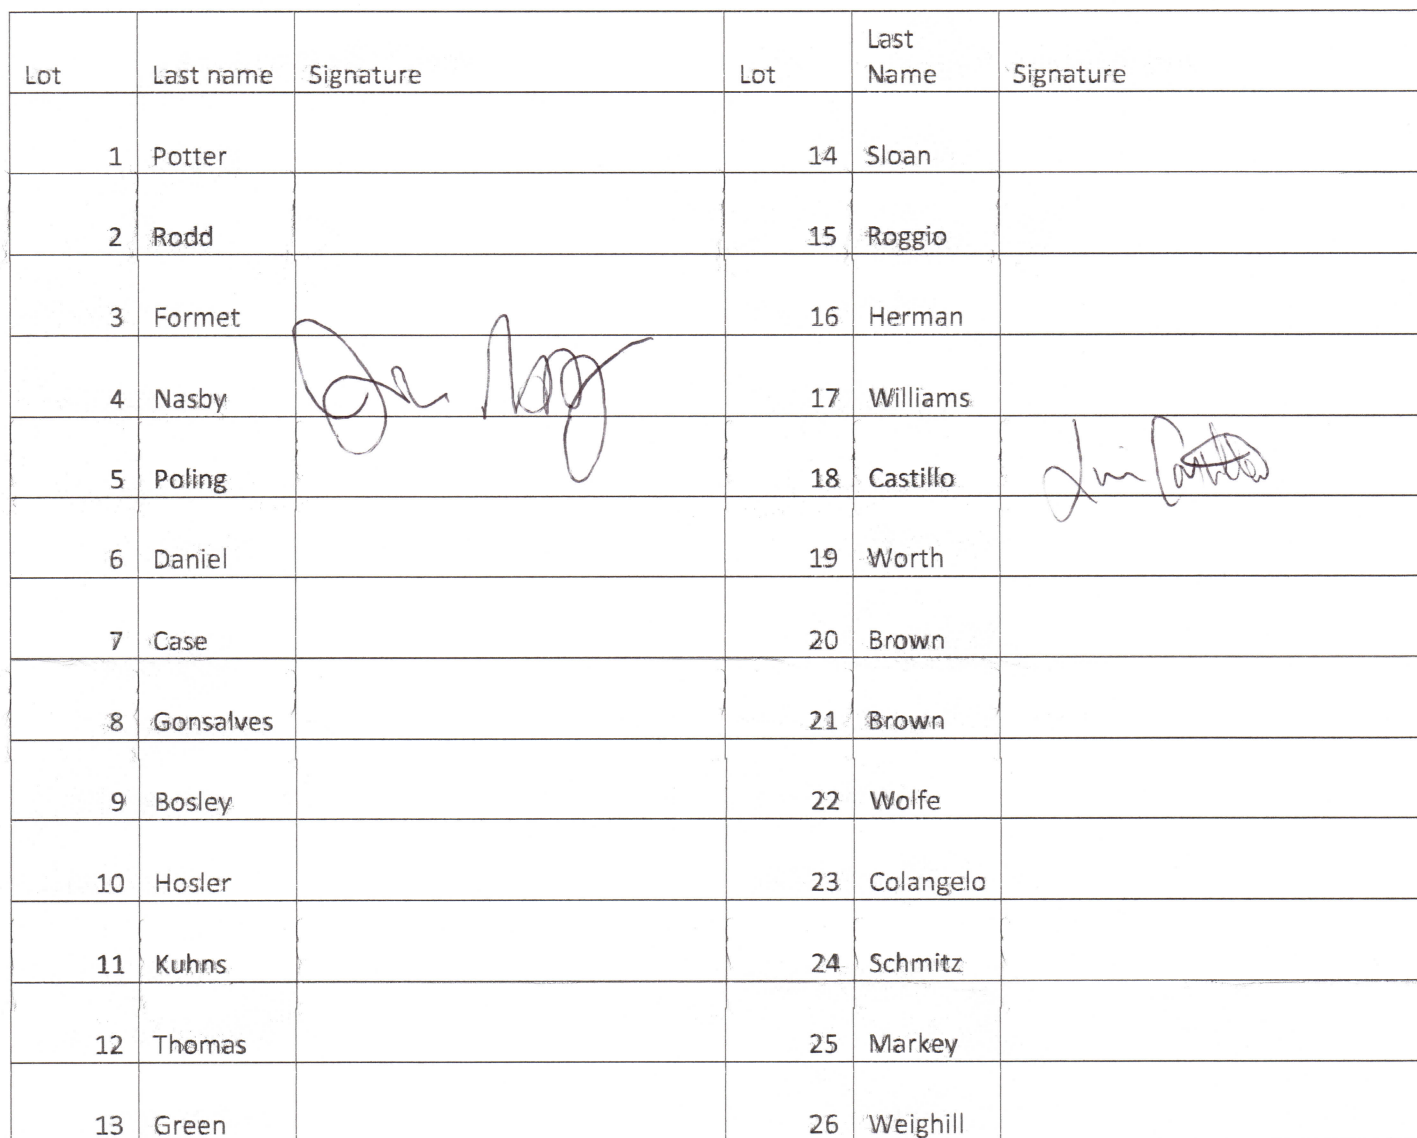 Lot Last name Signature Lot Last Name Signature
1 Potter 14 Sloan
2 Rodd 15 Roggio
3 Formet 16 Herman
4 Nasby 17 Williams
5 Poling 18 Castillo Castillo
6 Daniel 19 Worth
7 Case 20 Brown
8 Gonsalves 21 Brown
9 Bosley 22 Wolfe
10 Hosler 23 Colangelo
11 Kuhns 24 Schmitz
12 Thomas 25 Markey
13 Green 26 Weighill